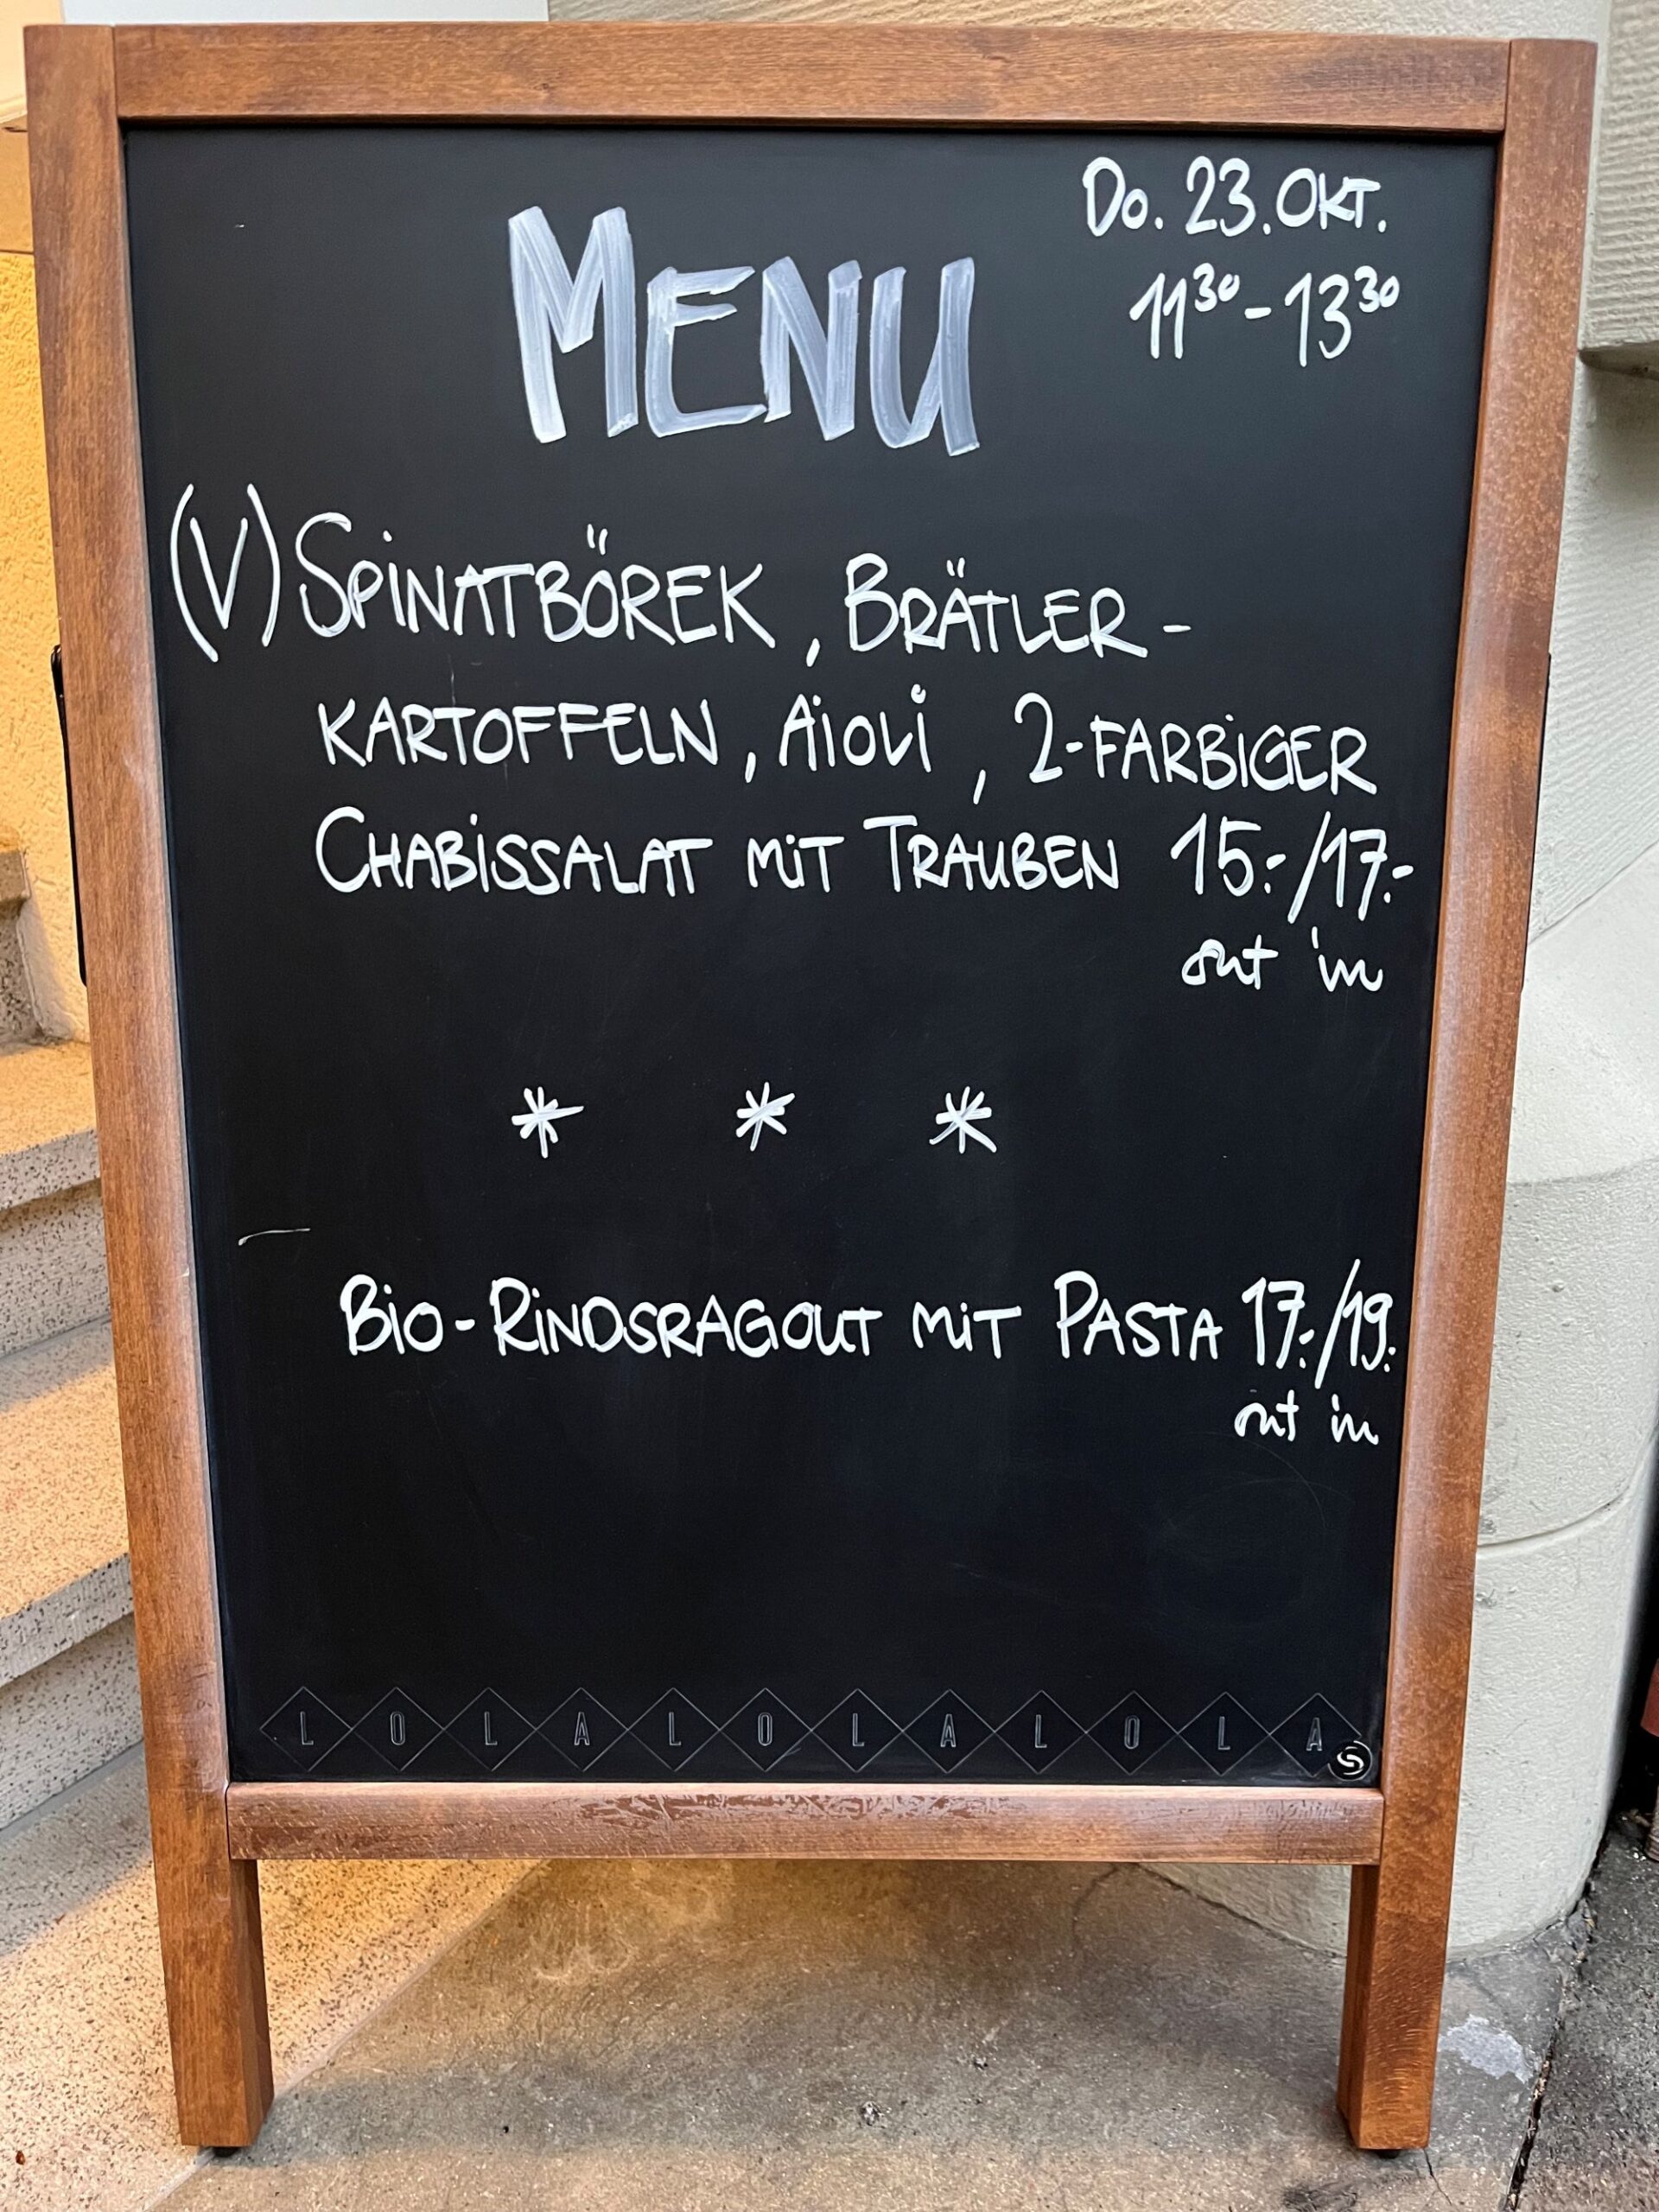 Do. 23. OKT.
11³⁰ - 13³⁰
MENU
(V) SPINATBÖREK, BRÄTLER-
KARTOFFELN, AÏOLI, 2-FARBIGER
CHABISSALAT MIT TRAUBEN 15.-/17.-
out in
* * *
BIO-RINDSRAGOUT MIT PASTA 17.-/19.-
out in
L O L A L O L A L O L A